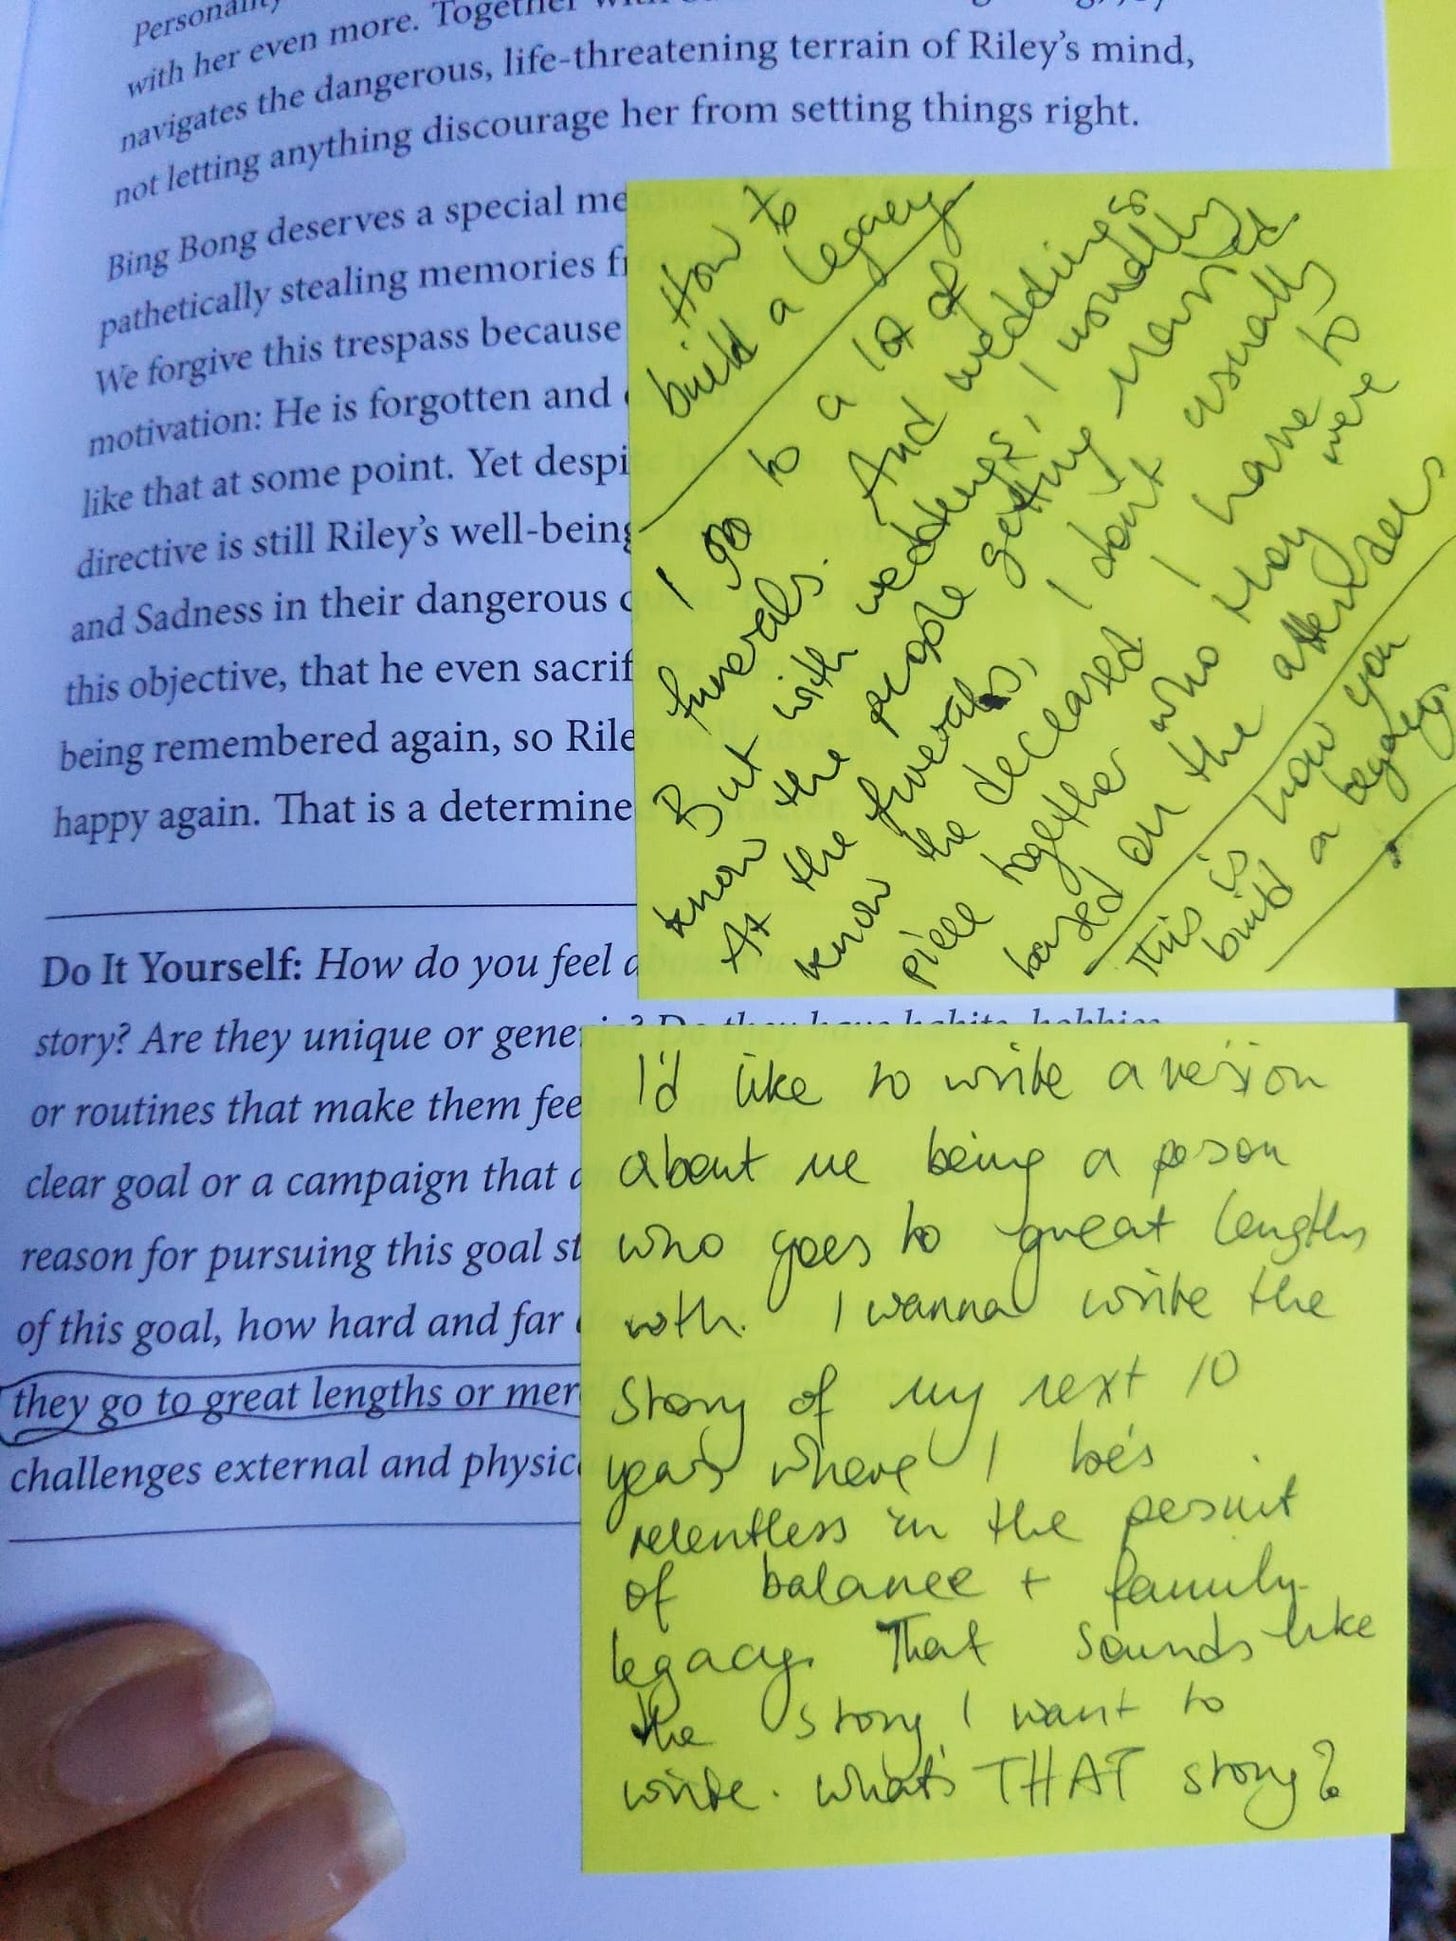 Personality
with her even more. Together
navigates the dangerous, life-threatening terrain of Riley's mind,
not letting anything discourage her from setting things right.
Bing Bong deserves a special me
pathetically stealing memories f
We forgive this trespass because
motivation: He is forgotten and
like that at some point. Yet despi
directive is still Riley's well-being
and Sadness in their dangerous q
this objective, that he even sacrif
being remembered again, so Rile
happy again. That is a determine
Do It Yourself: How do you feel a
story? Are they unique or generic? Do they have habits, hobbies,
or routines that make them fee
clear goal or a campaign that
reason for pursuing this goal st
of this goal, how hard and far
they go to great lengths or mer
challenges external and physic
How to
build a legacy
I go to a lot of
funerals. And weddings
But with weddings, I usually
know the people getting married.
At the funerals, I don't usually
know the deceased I have to
piece together who they were
based on the attendees
This is how you
build a legacy
I'd like to write a version
about me being a person
who goes to great lengths
with. I wanna write the
story of my next 10
years where I be's
relentless in the persuit
of balance + family
legacy. That sounds like
the story I want to
write. what's THAT story?